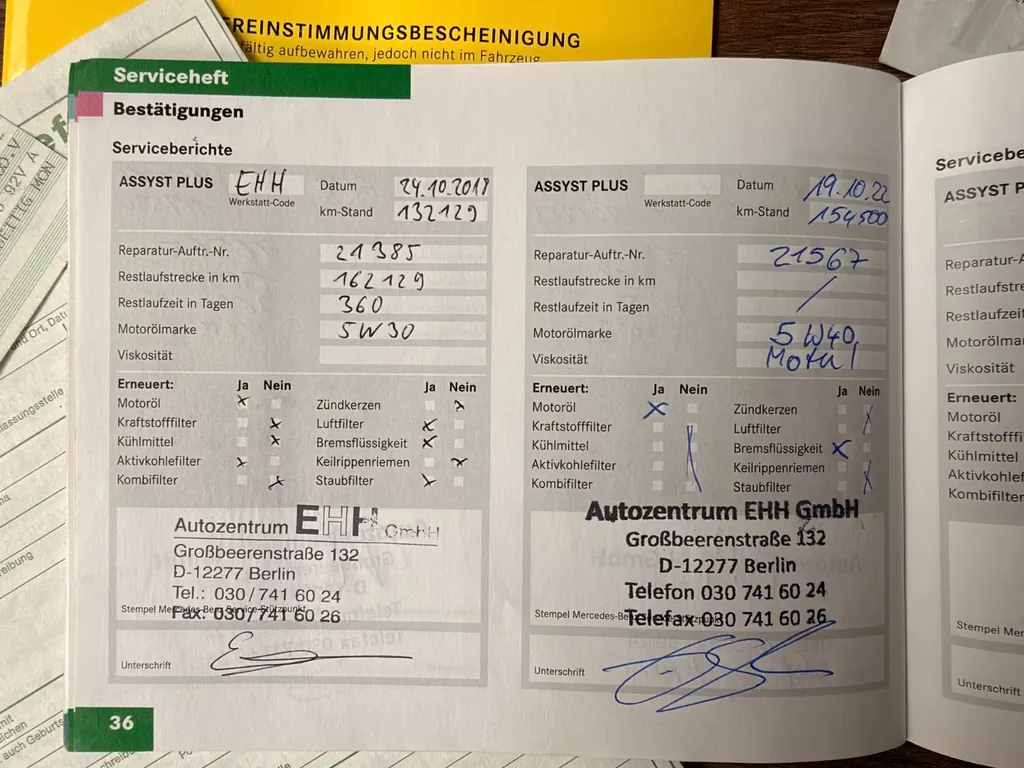 EREINSTIMMUNGSBESCHEINIGUNG
fältig aufbewahren, jedoch nicht im Fahrzeug
Serviceheft
Bestätigungen
Serviceberichte
ASSYST PLUS EHH Datum 24.10.2018
Werkstatt-Code
km-Stand 132129
Reparatur-Auftr.-Nr. 21385
Restlaufstrecke in km 162129
Restlaufzeit in Tagen 360
Motorölmarke 5W30
Viskosität
Erneuert: Ja Nein Ja Nein
Motoröl x Zündkerzen x
Kraftstofffilter x Luftfilter x
Kühlmittel x Bremsflüssigkeit x
Aktivkohlefilter x Keilrippenriemen x
Kombifilter x Staubfilter x
Autozentrum EHH GmbH
Großbeerenstraße 132
D-12277 Berlin
Tel.: 030/741 60 24
Fax: 030/741 60 26
Stempel Mercedes-Benz Service-Stützpunkt
Unterschrift
36
ASSYST PLUS Datum 19.10.22
Werkstatt-Code
km-Stand 154500
Reparatur-Auftr.-Nr. 21567
Restlaufstrecke in km /
Restlaufzeit in Tagen
Motorölmarke 5W40,
Viskosität Motul
Erneuert: Ja Nein Ja Nein
Motoröl x Zündkerzen
Kraftstofffilter Luftfilter
Kühlmittel Bremsflüssigkeit x
Aktivkohlefilter Keilrippenriemen
Kombifilter Staubfilter
Autozentrum EHH GmbH
Großbeerenstraße 132
D-12277 Berlin
Telefon 030 741 60 24
Telefax 030 741 60 26
Stempel Mercedes-Be
Unterschrift
Servicebe
ASSYST P
Reparatur-A
Restlaufstre
Restlaufzeit
Motorölma
Viskosität
Erneuert:
Motoröl
Kraftstofffi
Kühlmittel
Aktivkohlef
Kombifilter
Stempel Mer
Unterschrift